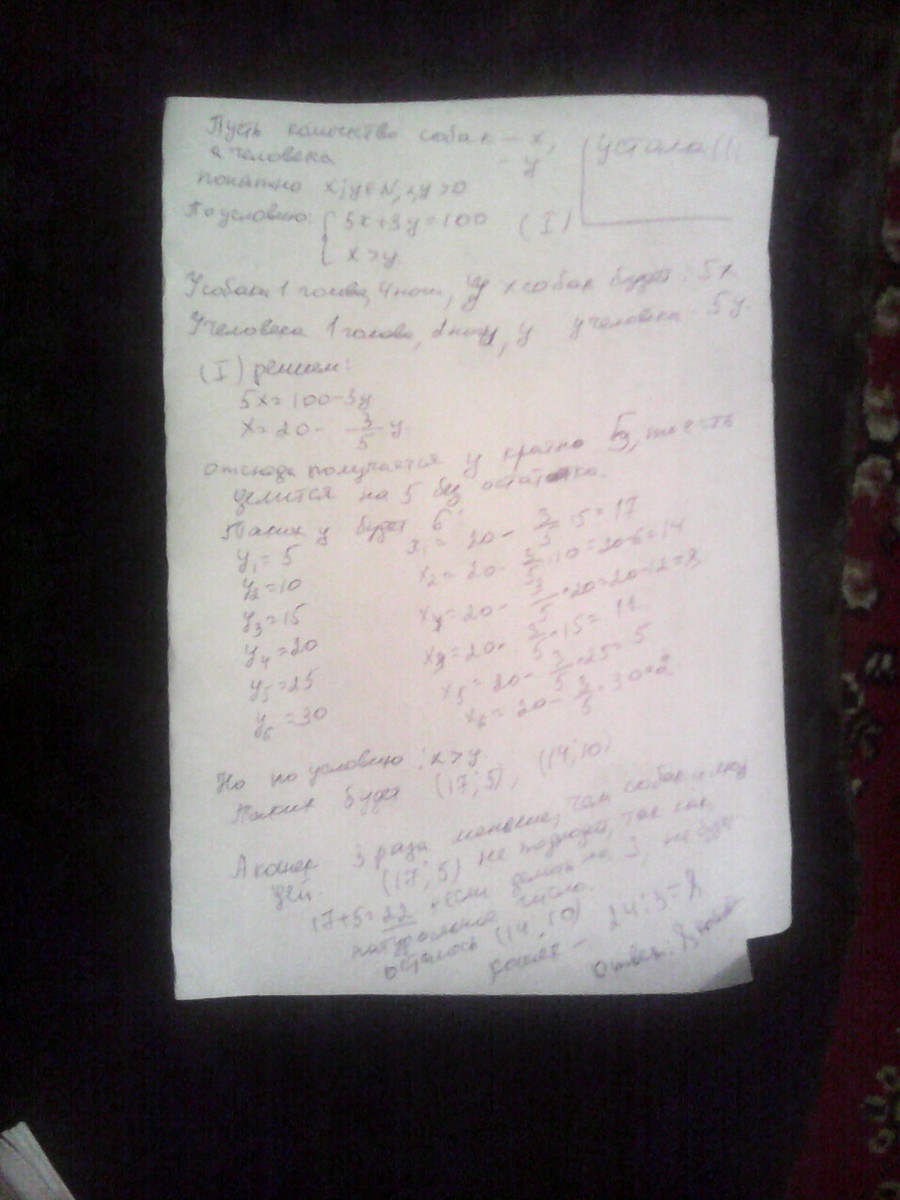 Пусть количество собак – x,
а человека – y
понятно x;y∈N, x,y>0
устала!!!
По условию: { 5x+3y=100 (I)
x>y.
У собаки 1 голова, 4 ноги, у x собак будет: 5x
У человека 1 голова, 2 ноги, у y человека: 5y.
(I) решаем:
5x=100-3y
x=20- 3/5 y.
отсюда получается y кратно 5, то есть
делится на 5 без остатка.
Таких y будет 6:
y1=5 x1= 20- 3/5·5=17
y2=10 x2=20- 3/5·10=20-6=14
y3=15 x4=20- 3/5·20=20-12=8
y4=20 x3=20- 3/5·15=11
y5=25 x5=20- 3/5·25=5
y6=30 x6=20- 3/5·30=2
Но по условию: x>y.
Таких будет (17;5), (14;10)
А кошек 3 раза меньше, чем собак и лю
дей. (17;5) не подходит, так как,
17+5=22, если делить на 3, не буде
натуральное число.
осталось (14,10)
кошек – 24:3=8
Ответ: 8